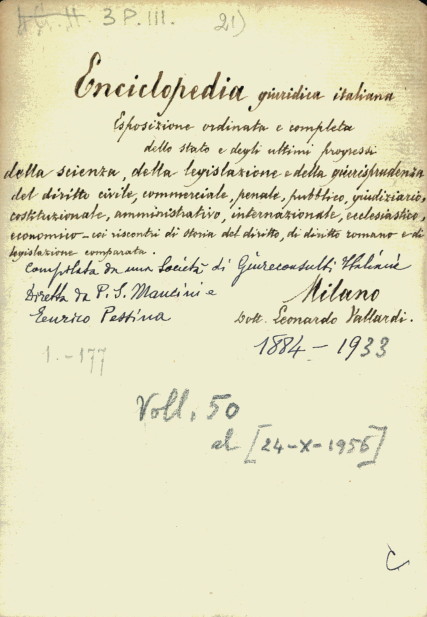 3 P. III. 21)
Enciclopedia giuridica italiana
Esposizione ordinata e completa
dello stato e degli ultimi progressi
della scienza, della legislazione e della giurisprudenza
del diritto civile, commerciale, penale, pubblico, giudiziario,
costituzionale, amministrativo, internazionale, ecclesiastico,
economico - coi riscontri di storia del diritto, di diritto romano e di
legislazione comparata.
Compilata da una Società di Giureconsulti Italiani
Diretta da P. S. Mancini e
Enrico Pessina
Milano
Dott. Leonardo Vallardi.
1884 - 1933
1.-177
Voll. 50
al [24-X-1956]
C